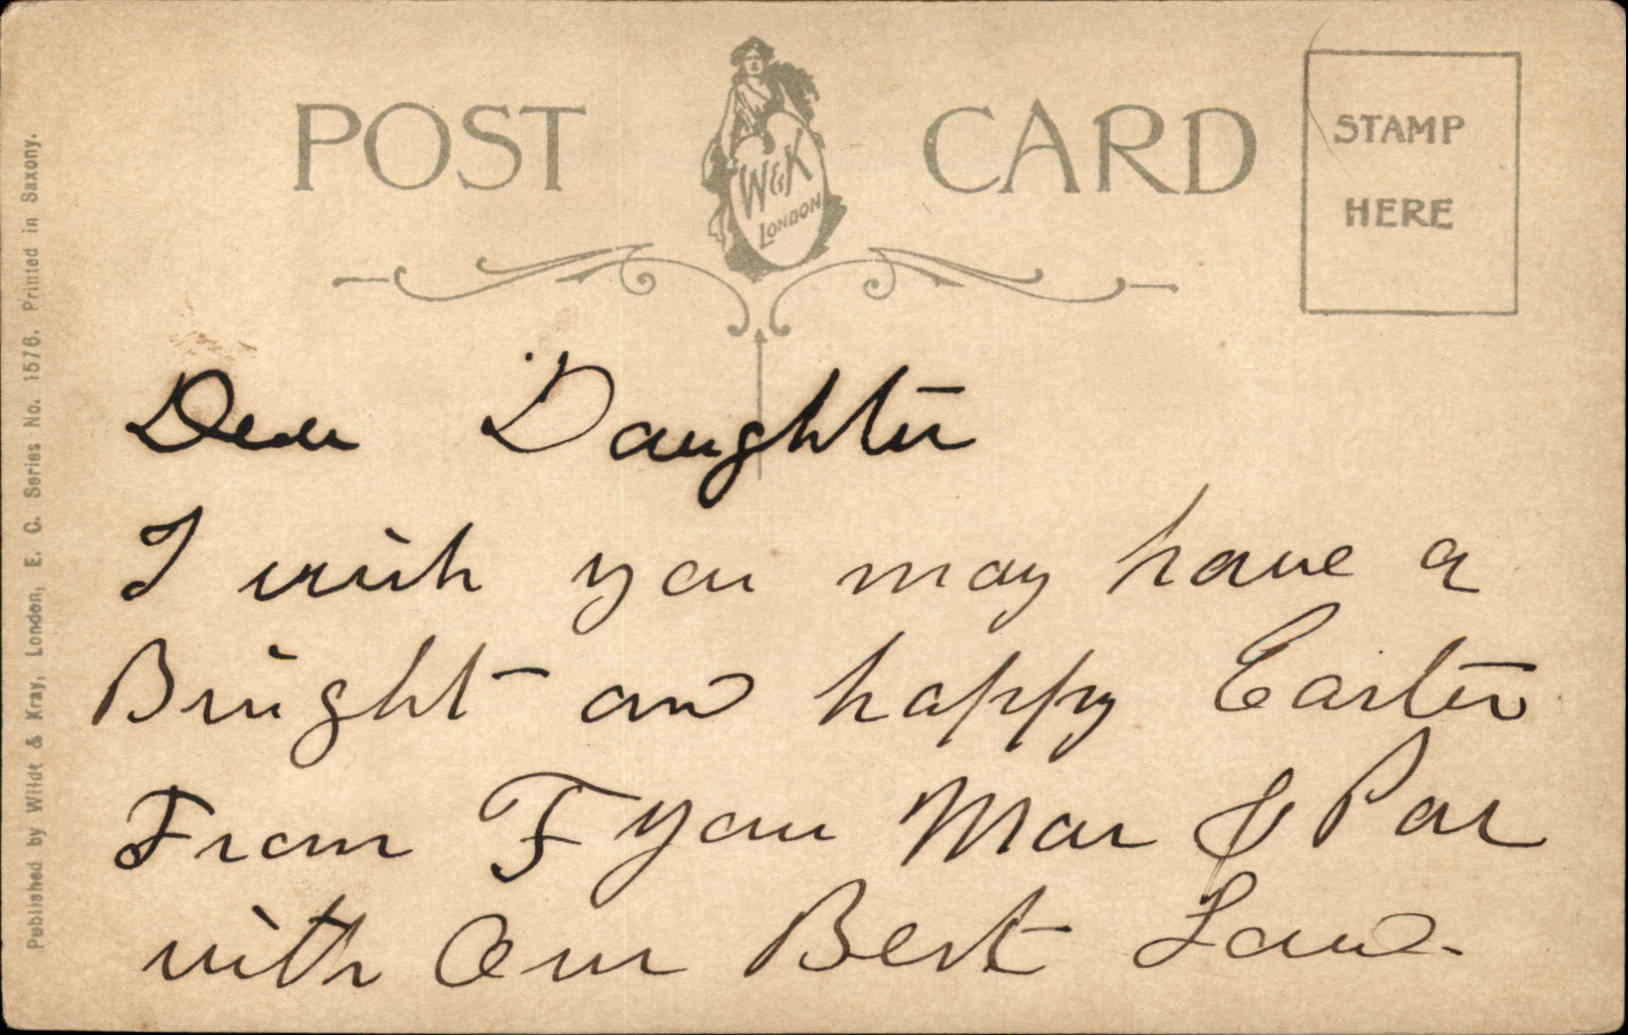 POST CARD
W&K
LONDON
STAMP
HERE
Published by Wildt & Kray, London, E. C. Series No. 1576. Printed in Saxony.
Dear Daughter
I wish you may have a
Bright and happy Easter
From your Mar & Par
with Our Best Love